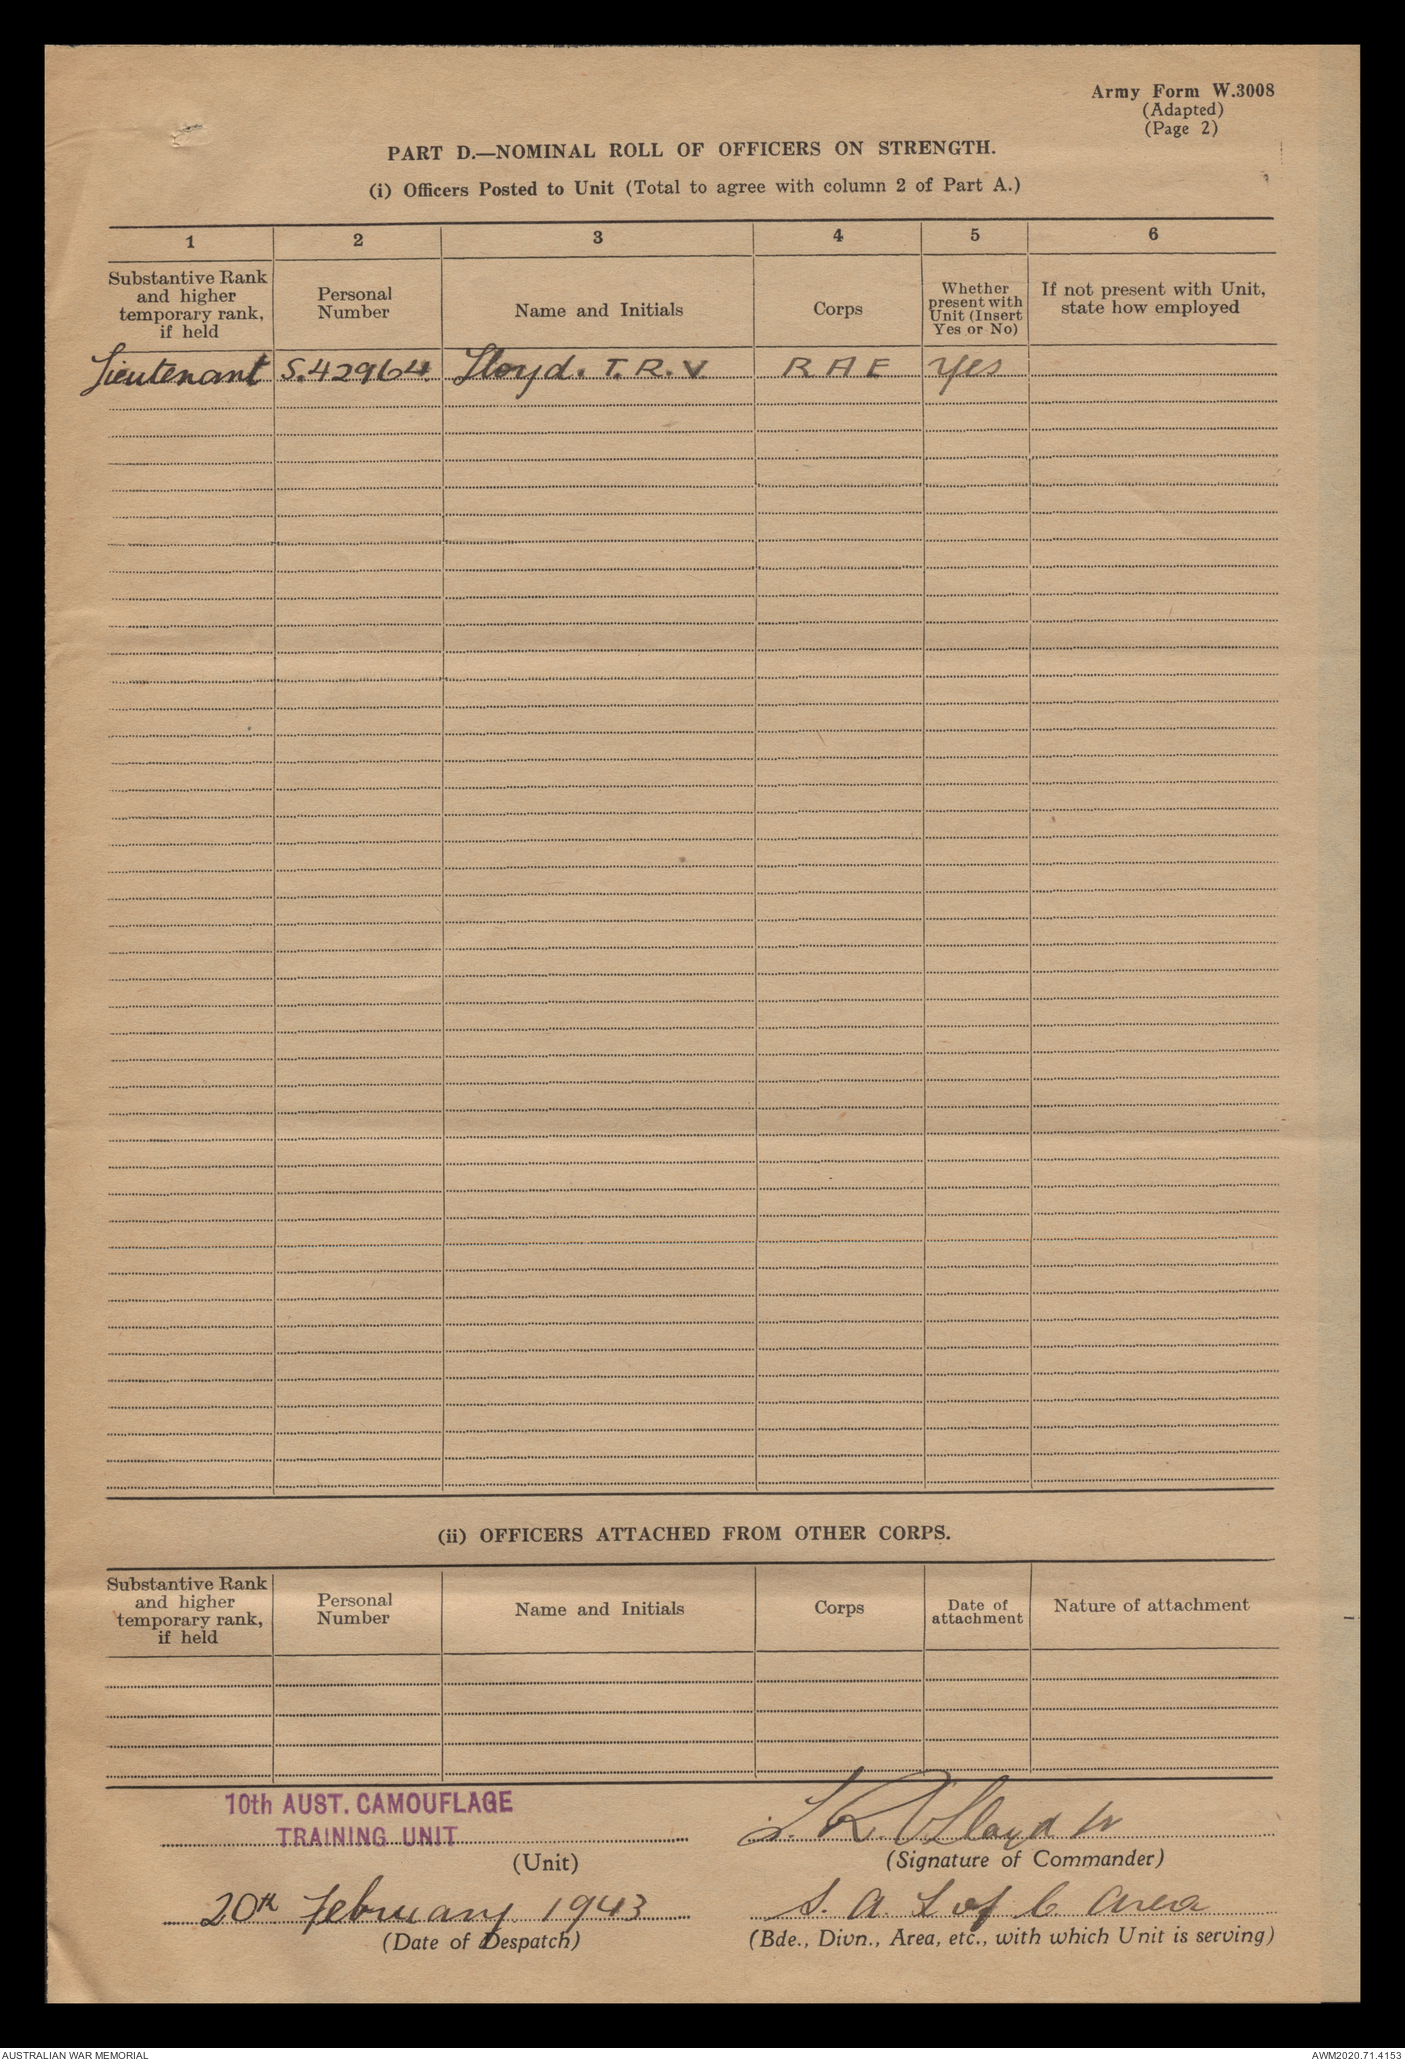 Army Form W.3008
(Adapted)
(Page 2)
PART D.—NOMINAL ROLL OF OFFICERS ON STRENGTH.
(i) Officers Posted to Unit (Total to agree with column 2 of Part A.)
1 2 3 4 5 6
Substantive Rank and higher temporary rank, if held
Personal Number
Name and Initials
Corps
Whether present with Unit (Insert Yes or No)
If not present with Unit, state how employed
Lieutenant S.42964. Lloyd. T.R.V RAE Yes
(ii) OFFICERS ATTACHED FROM OTHER CORPS.
Substantive Rank and higher temporary rank, if held
Personal Number
Name and Initials
Corps
Date of attachment
Nature of attachment
10th AUST. CAMOUFLAGE
TRAINING UNIT
(Unit)
T. R. V Lloyd Lt
(Signature of Commander)
20th February 1943
(Date of Despatch)
S. A. L of C. Area
(Bde., Divn., Area, etc., with which Unit is serving)
AUSTRALIAN WAR MEMORIAL
AWM2020.71.4153